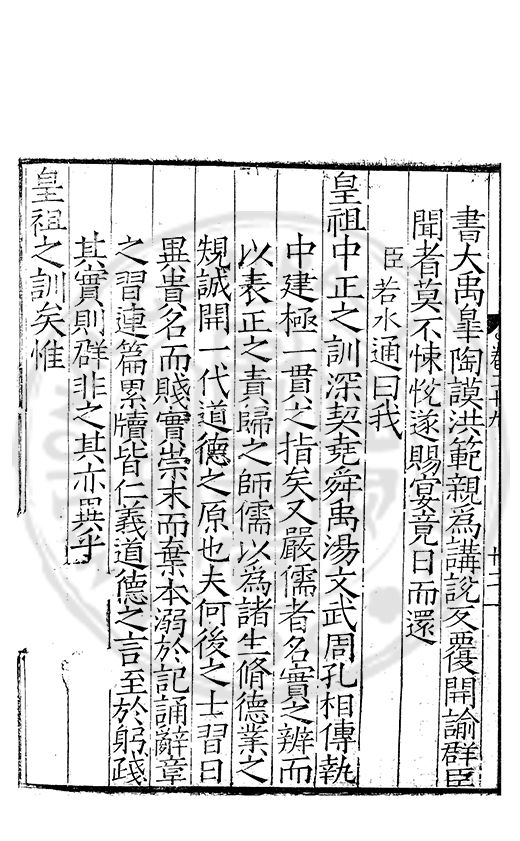 書大禹臯陶謨洪範親爲講說反覆開諭群臣
聞者莫不悚悅遂賜宴竟日而還
臣若水通曰我
皇祖中正之訓深契堯舜禹湯文武周孔相傳執
中建極一貫之指矣又嚴儒者名實之辨而
以表正之責歸之師儒以爲諸生脩德業之
規誠開一代道德之原也夫何後之士習日
異貴名而賤實崇末而棄本溺於記誦辭章
之習連篇累牘皆仁義道德之言至於躬踐
其實則群非之其亦異乎
皇祖之訓矣惟